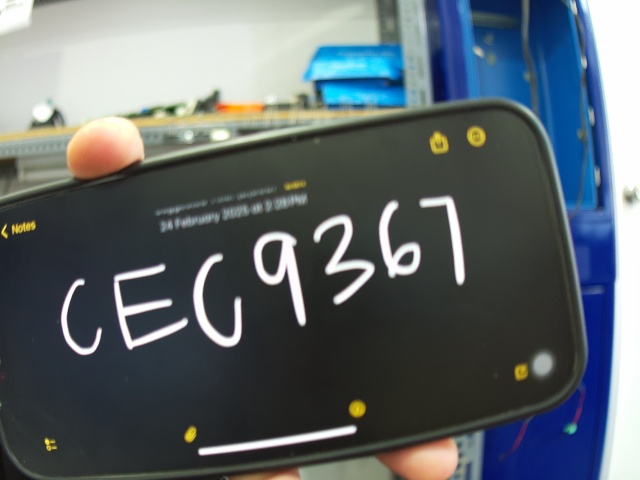 Notes
24 February 2025 at 2:28 PM
CEC9367